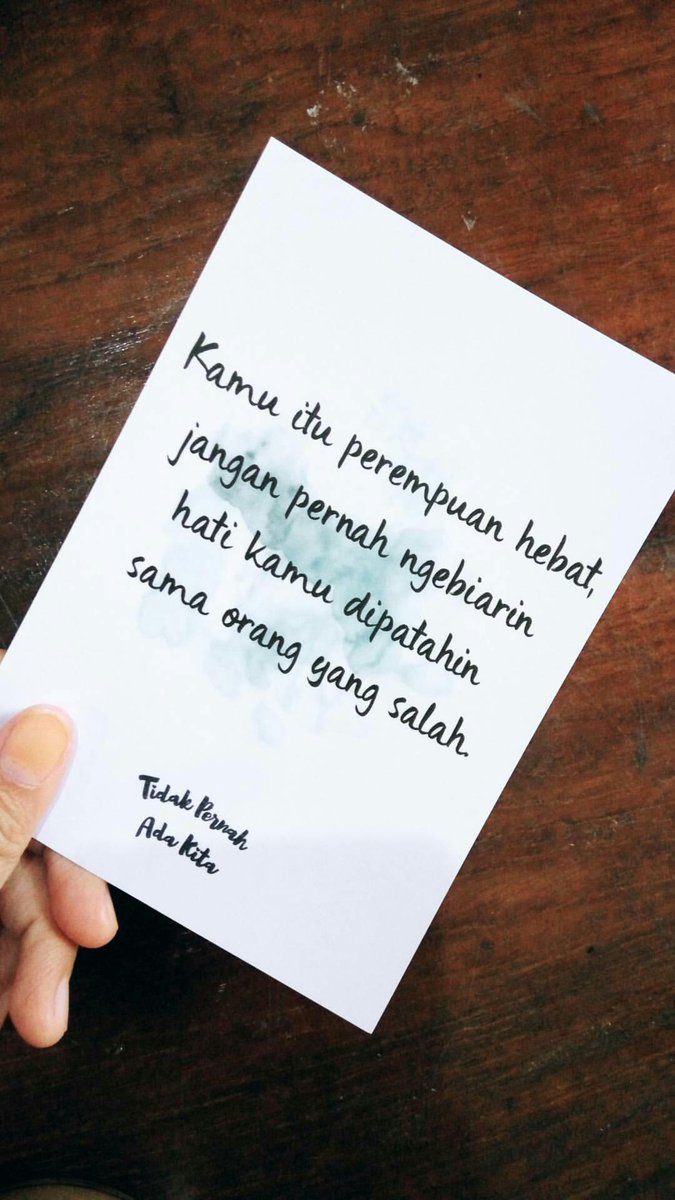 Kamu itu perempuan hebat,
jangan pernah ngebiarin
hati kamu dipatahin
sama orang yang salah.
Tidak Pernah
Ada Kita